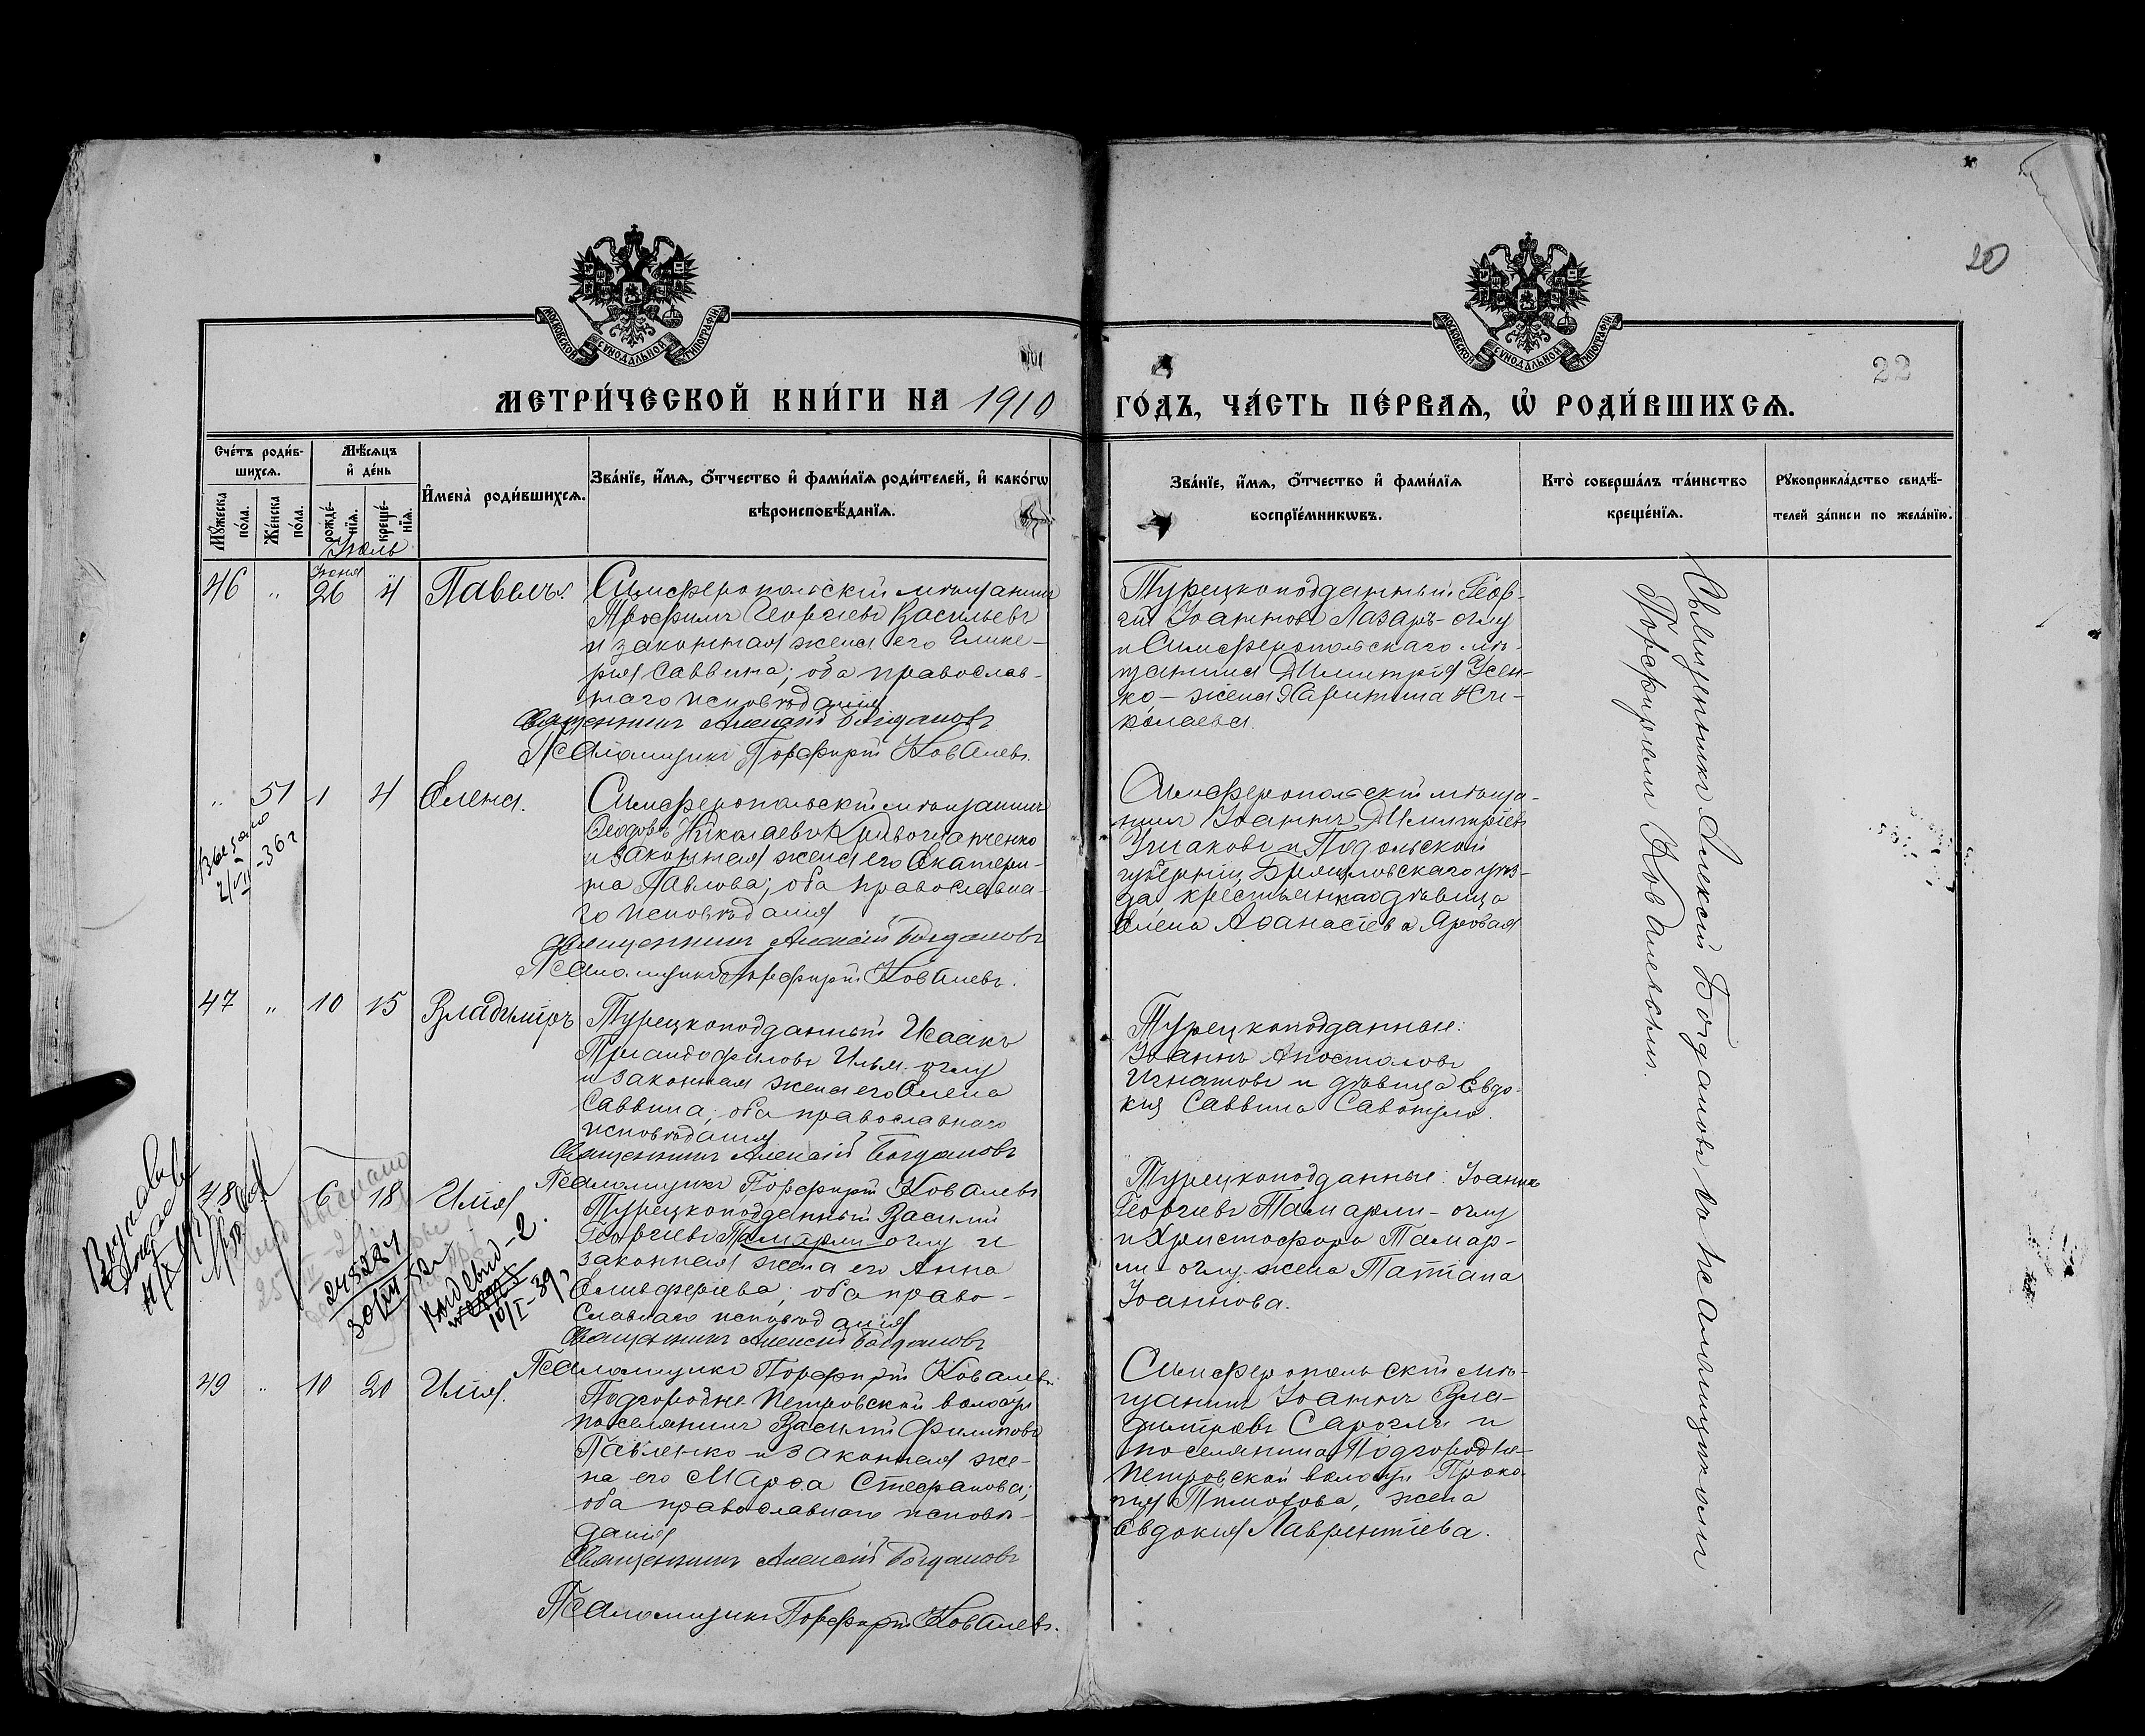 20
22
МОСКОВСКОЙ СѴНОДАЛЬНОЙ ТИПОГРАФІИ
МОСКОВСКОЙ СѴНОДАЛЬНОЙ ТИПОГРАФІИ
МЕТРИ́ЧЕСКОЙ КНИ́ГИ НА 1910 ГО́ДЪ, ЧА́СТЬ ПЕ́РВАѦ, Ѡ҆ РОДИ́ВШИХСѦ.
Сче́тъ роди́в-
шихсѧ.
Мꙋ́жеска по́ла.
Же́нска по́ла.
Мѣ́сѧцъ
и҆ де́нь
рожде́-
нїѧ.
креще́-
нїѧ.
И҆мена̀ роди́вшихсѧ.
Зва́нїе, и҆́мѧ, ѻ҆́тчество и҆ фами́лїѧ роди́телей, и҆ како́гѡ
вѣроисповѣ́данїѧ.
Зва́нїе, и҆́мѧ, ѻ҆́тчество и҆ фами́лїѧ
воспрїе́мникѡвъ.
Кто̀ соверша́лъ та́инство
креще́нїѧ.
Рꙋкоприкла́дство свидѣ́-
телей за́писи по жела́нїю.
Іюль
46 " Іюня 26 4 Павелъ.
Симферопольскій мѣщанинъ
Трофимъ Георгіевъ Васильевъ
и законная жена его Глике-
рія Саввина; оба православ-
наго исповѣданія
Священникъ Алексій Богдановъ
Псаломщикъ Порфирій Ковалевъ.
Турецкоподданный Геор-
гій Іоанновъ Лазарь-оглу
и Симферопольскаго мѣ-
щанина Димитрія Усен-
ко - жена Харитина Ни-
колаева.
" 51 1 4 Елена.
Симферопольскій мѣщанинъ
Ѳеодоръ Николаевъ Кривогатченко
и законная жена его Екатери-
на Павлова; оба православна-
го исповѣданія
Священникъ Алексій Богдановъ
Псаломщикъ Порфирій Ковалевъ.
Симферопольскій мѣща-
нинъ Іоаннъ Димитріевъ
Ушаковъ и Подольской
губерніи, Брацловскаго уѣз-
да крестьянка дѣвица
Елена Аѳанасіева Яровая
47 " 10 15 Владиміръ
Турецкоподданный Исаакъ
Тріандофиловъ Ильи-оглу
и законная жена его Елена
Саввина; оба православнаго
исповѣданія
Священникъ Алексій Богдановъ
Псаломщикъ Порфирій Ковалевъ
Турецкоподданные:
Іоаннъ Апостоловъ
Игнатовъ и дѣвица Евдо-
кія Саввина Савопуло.
48 6 18 Илія
Турецкоподданный Василій
Георгіевъ Тамарли-оглу и
законная жена его Анна
Елевферіева; оба право-
славнаго исповѣданія
Священникъ Алексій Богдановъ
Псаломщикъ Порфирій Ковалевъ
Турецкоподданные: Іоаннъ
Георгіевъ Тамарли-оглу
и Христофора Тамар-
ли-оглу жена Татіана
Іоаннова.
248284
10/I-39
49 " 10 20 Илія.
Подгородне-Петровской волости
поселянинъ Василій Филиповъ
Павленко и законная же-
на его Марѳа Стефанова;
оба православнаго исповѣ-
данія
Священникъ Алексій Богдановъ
Псаломщикъ Порфирій Ковалевъ.
Симферопольскій мѣ-
щанинъ Іоаннъ Вла-
диміровъ Сарогли и
поселянина Подгородне-
Петровской волости Проко-
пія Тимоѳова, жена
Евдокія Лаврентіева.
Священникъ Алексій Богдановъ съ псаломщикомъ
Порфиріемъ Ковалевымъ.